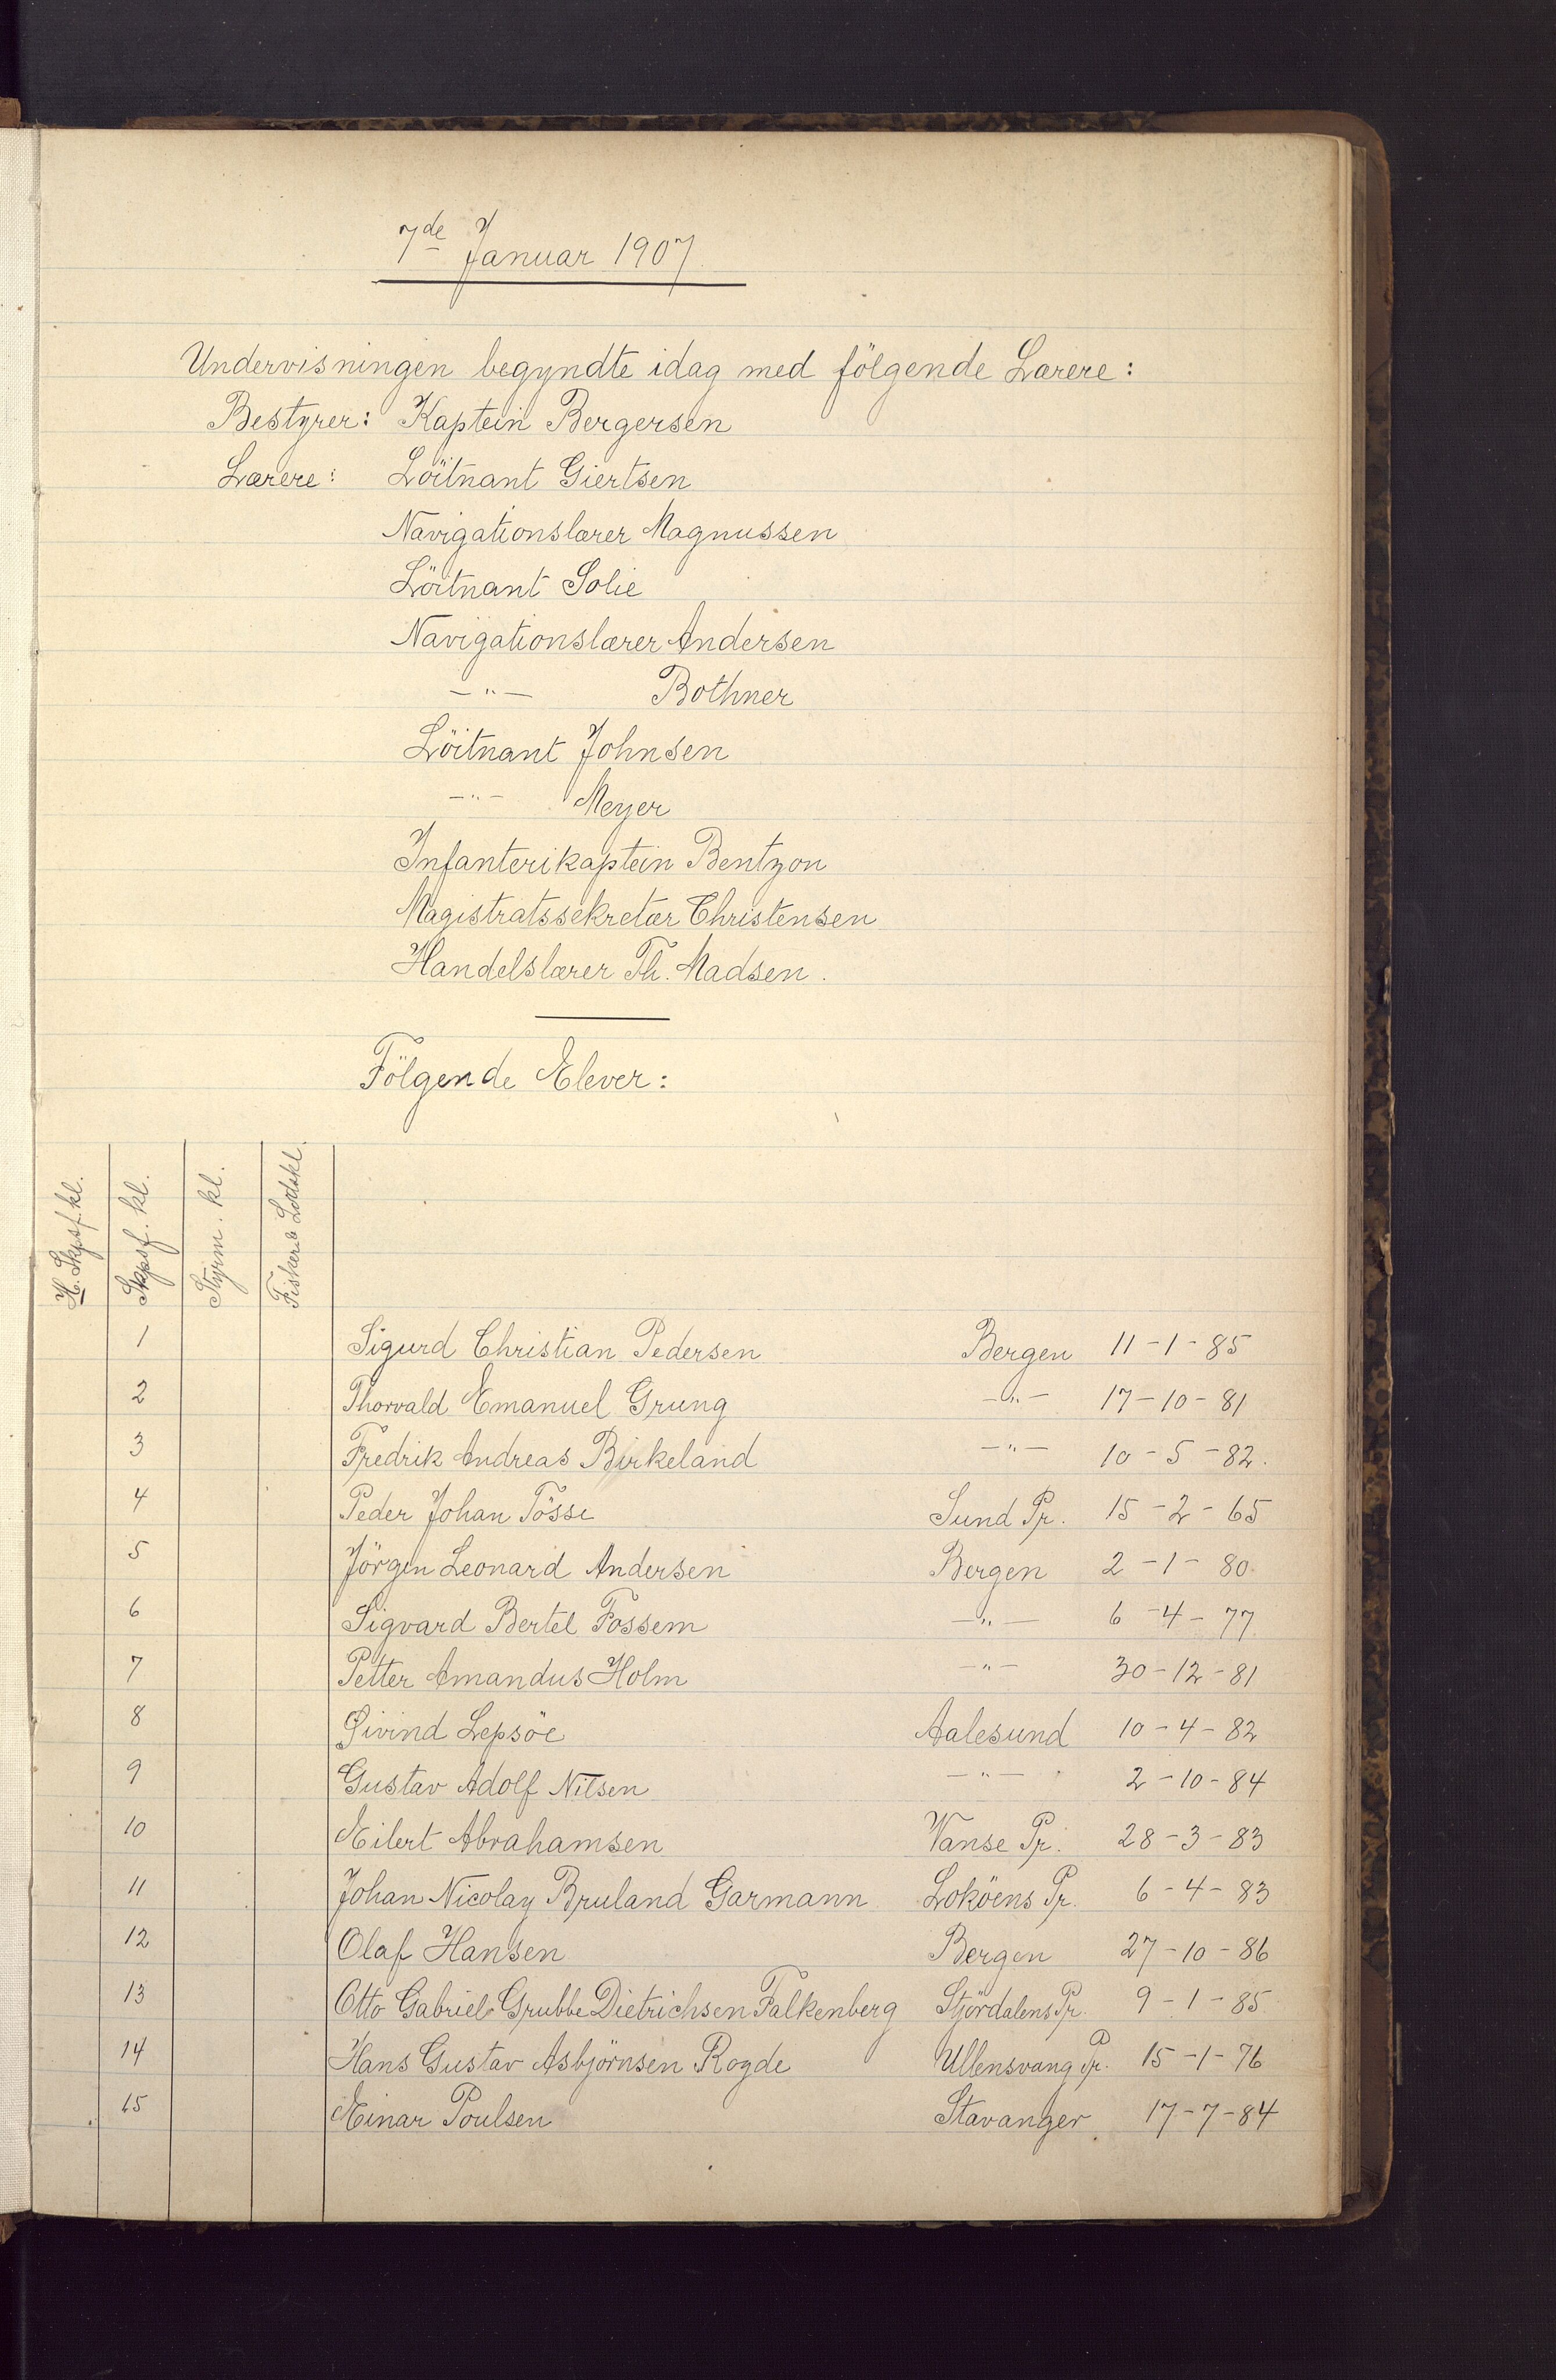 7de Januar 1907
Undervisningen begyndte idag med fölgende Lærere:
Bestyrer: Kaptein Bergersen
Lærere: Löitnant Giertsen
Navigationslærer Magnussen
Löitnant Solie
Navigationslærer Andersen
-"- Bothner
Löitnant Johnsen
-"- Meyer
Infanterikaptein Bentzon
Magistratssekretær Christensen
Handelslærer Th. Madsen.
Fölgende Elever:
H. Skpsf. kl.
Skpsf. kl.
Styrm. kl.
Fisker & Lodskl.
1 Sigurd Christian Pedersen Bergen 11-1-85
2 Thorvald Emanuel Grung -"- 17-10-81
3 Fredrik Andreas Birkeland -"- 10-5-82.
4 Peder Johan Tösse Sund Pr. 15-2-65
5 Jörgen Leonard Andersen Bergen 2-1-80.
6 Sigvard Bertel Fossem -"- 6-4-77.
7 Petter Amandus Holm -"- 30-12-81
8 Øivind Lepsöe Aalesund 10-4-82
9 Gustav Adolf Nilsen -"- 2-10-84
10 Eilert Abrahamsen Vanse Pr. 28-3-83
11 Johan Nicolay Bruland Garmann Loköens Pr. 6-4-83
12 Olaf Hansen Bergen 27-10-86
13 Otto Gabriel Grubbe Dietrichsen Falkenberg Stjördalens Pr. 9-1-85
14 Hans Gustav Asbjörnsen Rogde Ullensvang Pr. 15-1-76
15 Einar Poulsen Stavanger 17-7-84